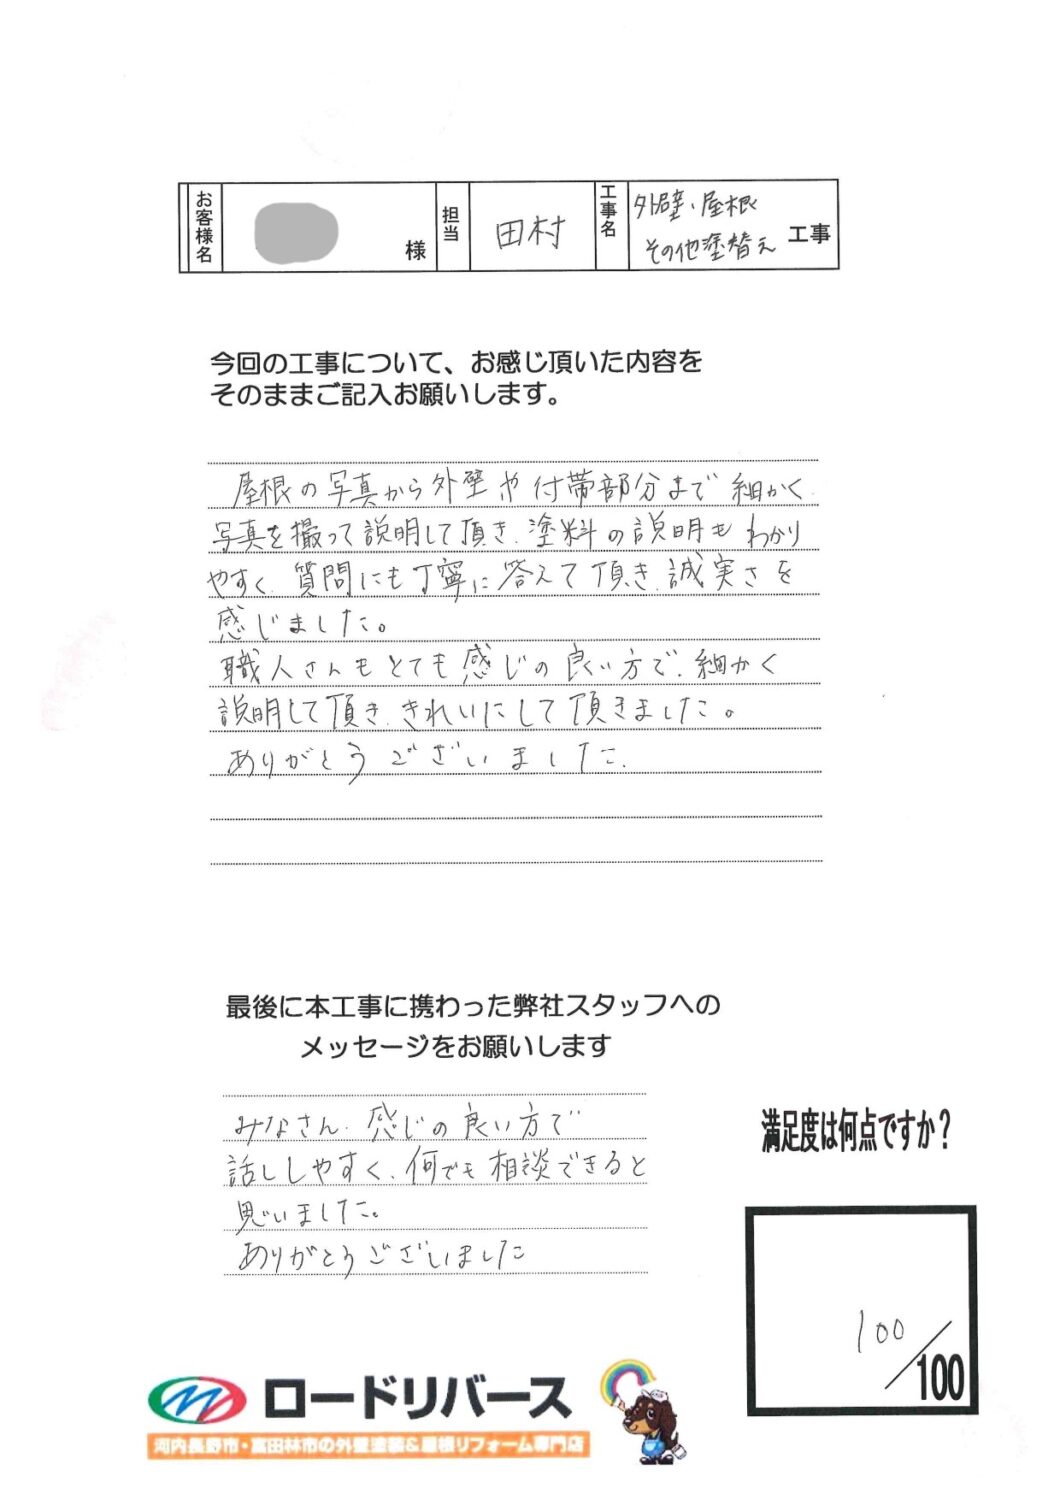 お客様名
様
担当
田村
工事名
外壁、屋根
その他塗替え 工事
今回の工事について、お感じ頂いた内容を
そのままご記入お願いします。
屋根の写真から外壁や付帯部分まで細かく
写真を撮って説明して頂き、塗料の説明もわかり
やすく、質問にも丁寧に答えて頂き、誠実さを
感じました。
職人さんもとても感じの良い方で、細かく
説明して頂き、きれいにして頂きました。
ありがとうございました。
最後に本工事に携わった弊社スタッフへの
メッセージをお願いします
みなさん、感じの良い方で
話ししやすく、何でも相談できると
思いました。
ありがとうございました
満足度は何点ですか?
100/100
ロードリバース
河内長野市・富田林市の外壁塗装&屋根リフォーム専門店